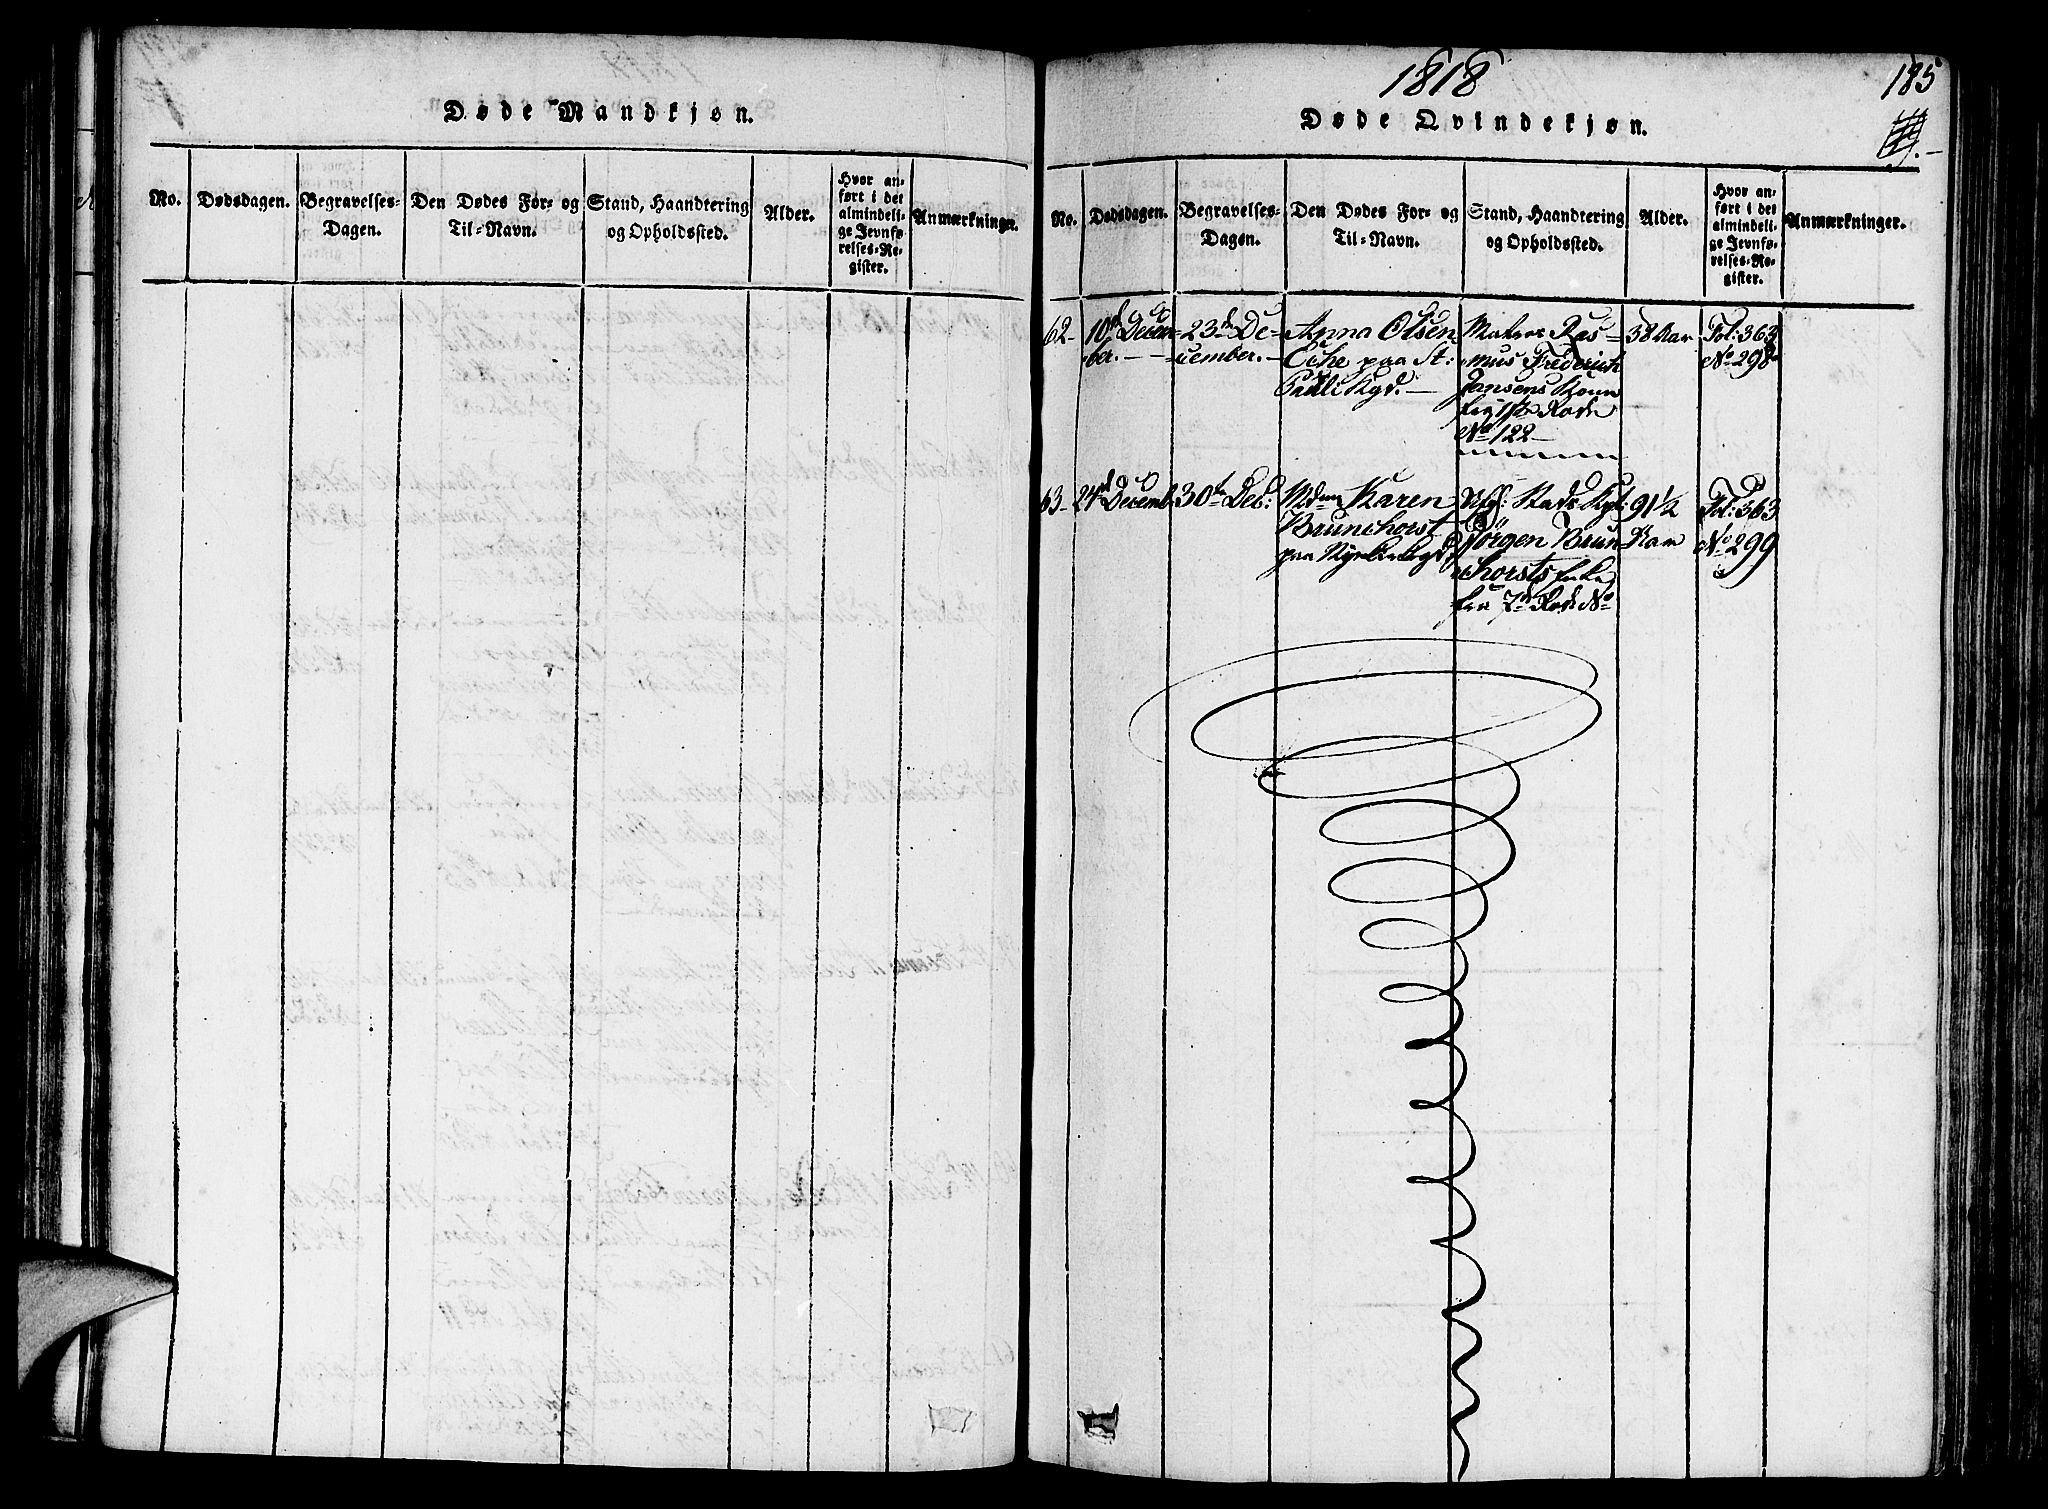 Døde Mandkjøn.
No.
Dødsdagen.
Begravelses-
Dagen.
Den Dødes For- og
Til-Navn.
Stand, Haandtering
og Opholdssted.
Alder.
Hvor an-
ført i det
almindeli-
ge Jevnfø-
relses-Re-
gister.
Anmærkninger.
1818
185
Døde Qvindekjøn.
No.
Dødsdagen.
Begravelses-
Dagen.
Den Dødes For- og
Til-Navn.
Stand, Haandtering
og Opholdssted.
Alder.
Hvor an-
ført i det
almindeli-
ge Jevnfø-
relses-Re-
gister.
Anmærkninger.
62-
10de Decem-
ber. - -
23de De-
cember. -
Anna Olsen
paa St:
Pauli Kgd. -
Matros Ras-
mus Frederich
Jansens Kone
fra Rode
No 122 -
38 Aar
Fol: 363
No 298
63-
24de Decemb
30te Dec:
Mdme Karen
Brunchorst
paa Nykirkekgd
Kpt:
Jörgen Brun-
chorsts Enke
fra 7de Rode No
91 1/2
Aar
Fol: 363
No 299